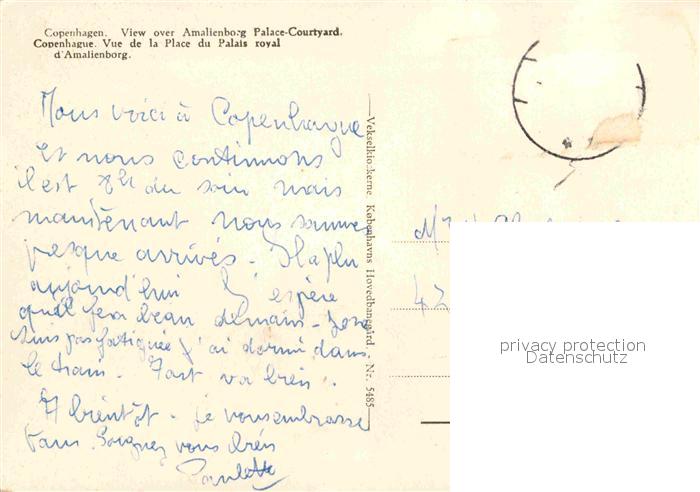 Copenhagen. View over Amalienborg Palace-Courtyard.
Copenhague. Vue de la Place du Palais royal
d'Amalienborg.
Nous voici à Copenhague
et nous continuons
il est 8h du soir mais
maintenant nous sommes
presque arrivés - Il a plu
aujourd'hui J'espère
qu'il fera beau demain - Je ne
suis pas fatiguée j'ai dormi dans
le train - Tout va bien.
A bientôt - je vous embrasse
tous. Soignez vous bien
Paulette
Vekselkioskerne Københavns Hovedbanegård. Nr. 5485
42
privacy protection
Datenschutz